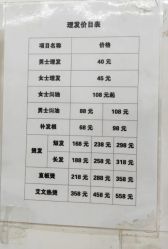 理发价目表
项目名称 价格
男士理发 40 元
女士理发 45 元
女士焗油 108 元起
男士焗油 88 元 108 元
补发根 68 元 98 元
烫发 短发 168 元 238 元 298 元
长发 188 元 258 元 318 元
直板烫 218 元 288 元 358 元
艾文热烫 358 元 458 元 558 元